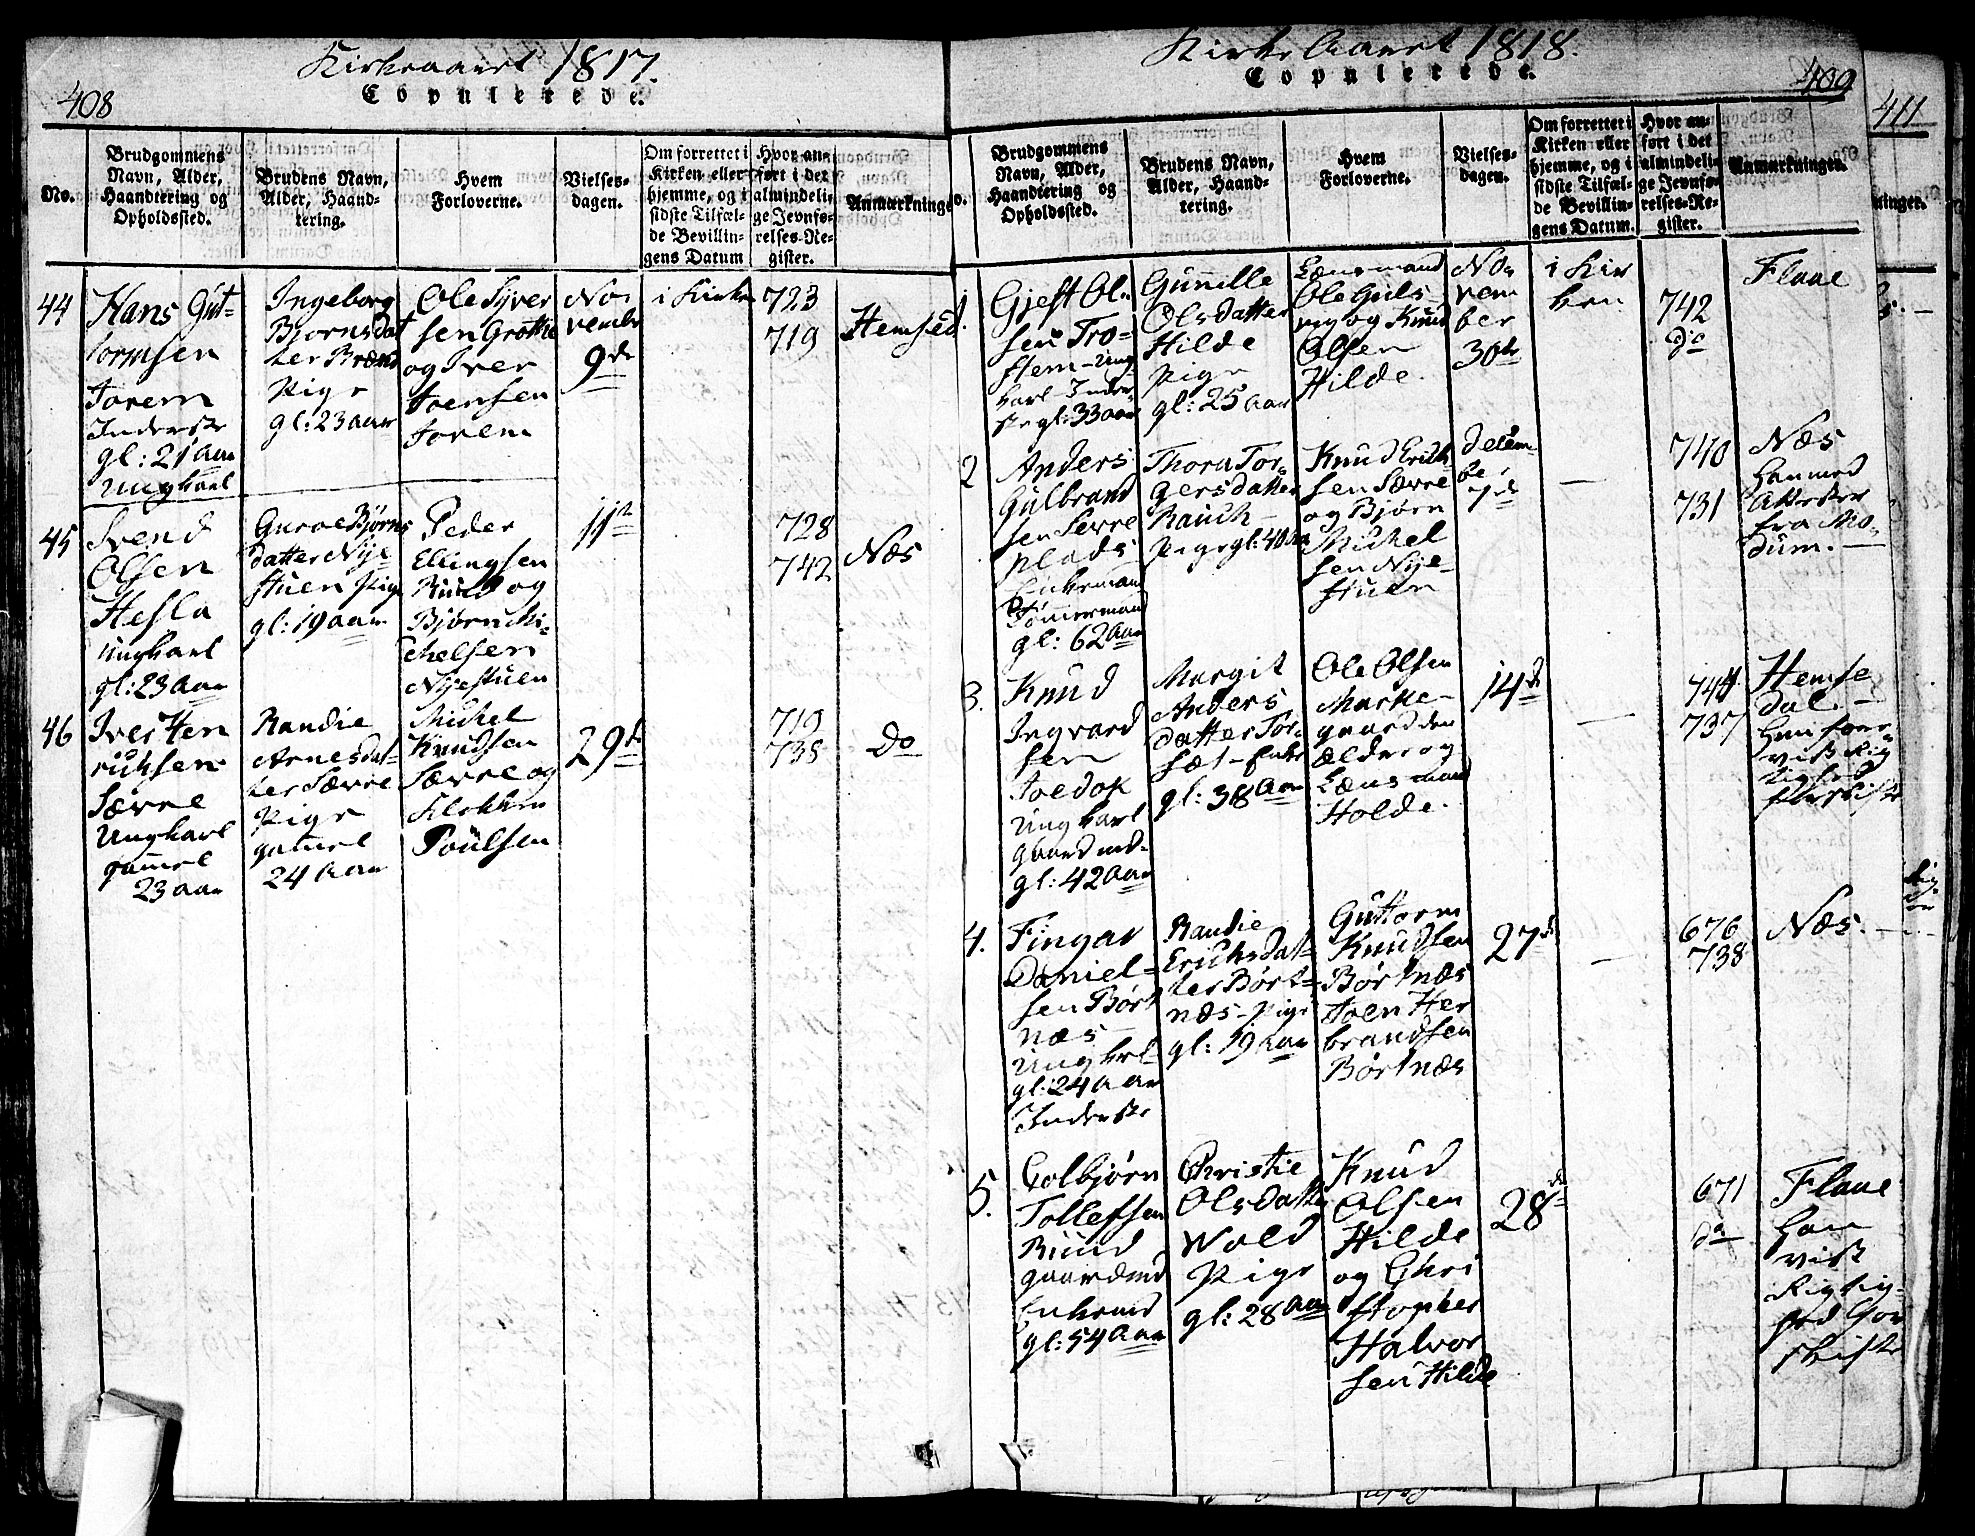 Kirkeaaret 1817.
408
Copulerede.
No.
Brudgommens
Navn, Alder,
Haandtering og
Opholdssted.
Brudens Navn,
Alder, Haand-
tering.
Hvem
Forloverne.
Vielses-
dagen.
Om forrettet i
Kirken eller
hjemme, og i
sidste Tilfæl-
de Bevillin-
gens Datum
Hvor an-
ført i det
almindeli-
ge Jevnfø-
relses-Re-
gister.
Anmærkninger
44
Hans Gut-
tormsen
Torem
Inderste
gl: 21 Aar
Ungkarl
Ingeborg
Bjornsdat
ter Brænd
Pige
gl: 23 aar
Ole Syver
sen Grotte
og Iver
Joensen
Torem
No-
vembr
9de
i Kirke
723
719
Hemsed.
45
Svend
Olsen
Hesla
Ungkarl
gl: 23 Aar
Guroe Bjørns
datter Nye-
stuen Pige
gl: 19 aar
Peder
Ellingsen
Ruud og
Bjørn Mi-
chelsen
Nyestuen
11te
728
742
Næs
46
Iver Hen
richsen
Særre
Ungkarl
gamel
23 aar
Randie
Arnesdat-
ter Særre
Pige
gamel
24 Aar
Michel
Knudsen
Særre og
Klokker
Poulsen
29de
719
738
Do
Kirke Aaret 1818.
Copulerede.
409
411
o.
Brudgommens
Navn, Alder,
Haandtering og
Opholdssted.
Brudens Navn,
Alder, Haand-
tering.
Hvem
Forloverne.
Vielses-
dagen.
Om forrettet i
Kirken eller
hjemme, og i
sidste Tilfæl-
de Bevillin-
gens Datum.
Hvor an-
ført i det
almindeli-
ge Jevnfø-
relses-Re-
gister.
Anmærkninger.
ninger.
1
Gjest Ol-
sen Tro-
stem - Ung
karl - Inder
ste gl: 33 aar
Gunille
Olsdatter
Hilde
Pige
gl: 25 Aar
Lænsmand
Ole Guls-
vig og Knud
Olsen
Hilde.
No-
vem
ber
30te
i Kir
ken
742
do
Flaae
2
Anders
Gulbrand
sen Serre
plads
Enkemand
Tømmermand
gl: 62 Aar
Thora Tor-
gersdatter
Rauch-
Pige gl: 40 Aar
Knud Erich
sen Særre
og Bjørn
Michel
sen Nye-
stuen
Decem-
be
7de
740
731
Næs
Han med
Attester
fra Mo-
dum.
3.
Knud
Ingvard
sen
Toedok
Ungkarl
Gaardmd.
gl: 42 Aar
Margit
Anders
datter Tor-
sæt - Enke
gl: 38 Aar
Ole Olsen
Markegaard den
ældre og
Lænsmand
Holde.
14de
744
737
Hemse
dal.
4.
Fingar
Daniel-
sen Bort
næs
Ungkarl
gl: 24 Aar
Inderste
Randie
Erichsdat-
ter Børt-
næs - Pige
gl: 19 Aar
Guttorm
Knudsen
Børtnæs
Joen Her
brandsen
Børtnæs
27de
676
738
Næs.
5.
Colbjørn
Tollefsen
Ruud
gaardmd
Enkemd
gl: 54 Aar
Christie
Olsdatter
Wold
Pige
gl: 28 Aar
Knud
Olsen
Hilde
og Chri
stopher
Halvor
sen Hilde
28de
671
do
Flaae
Han
vist
Rigtig-
hed for
skifte